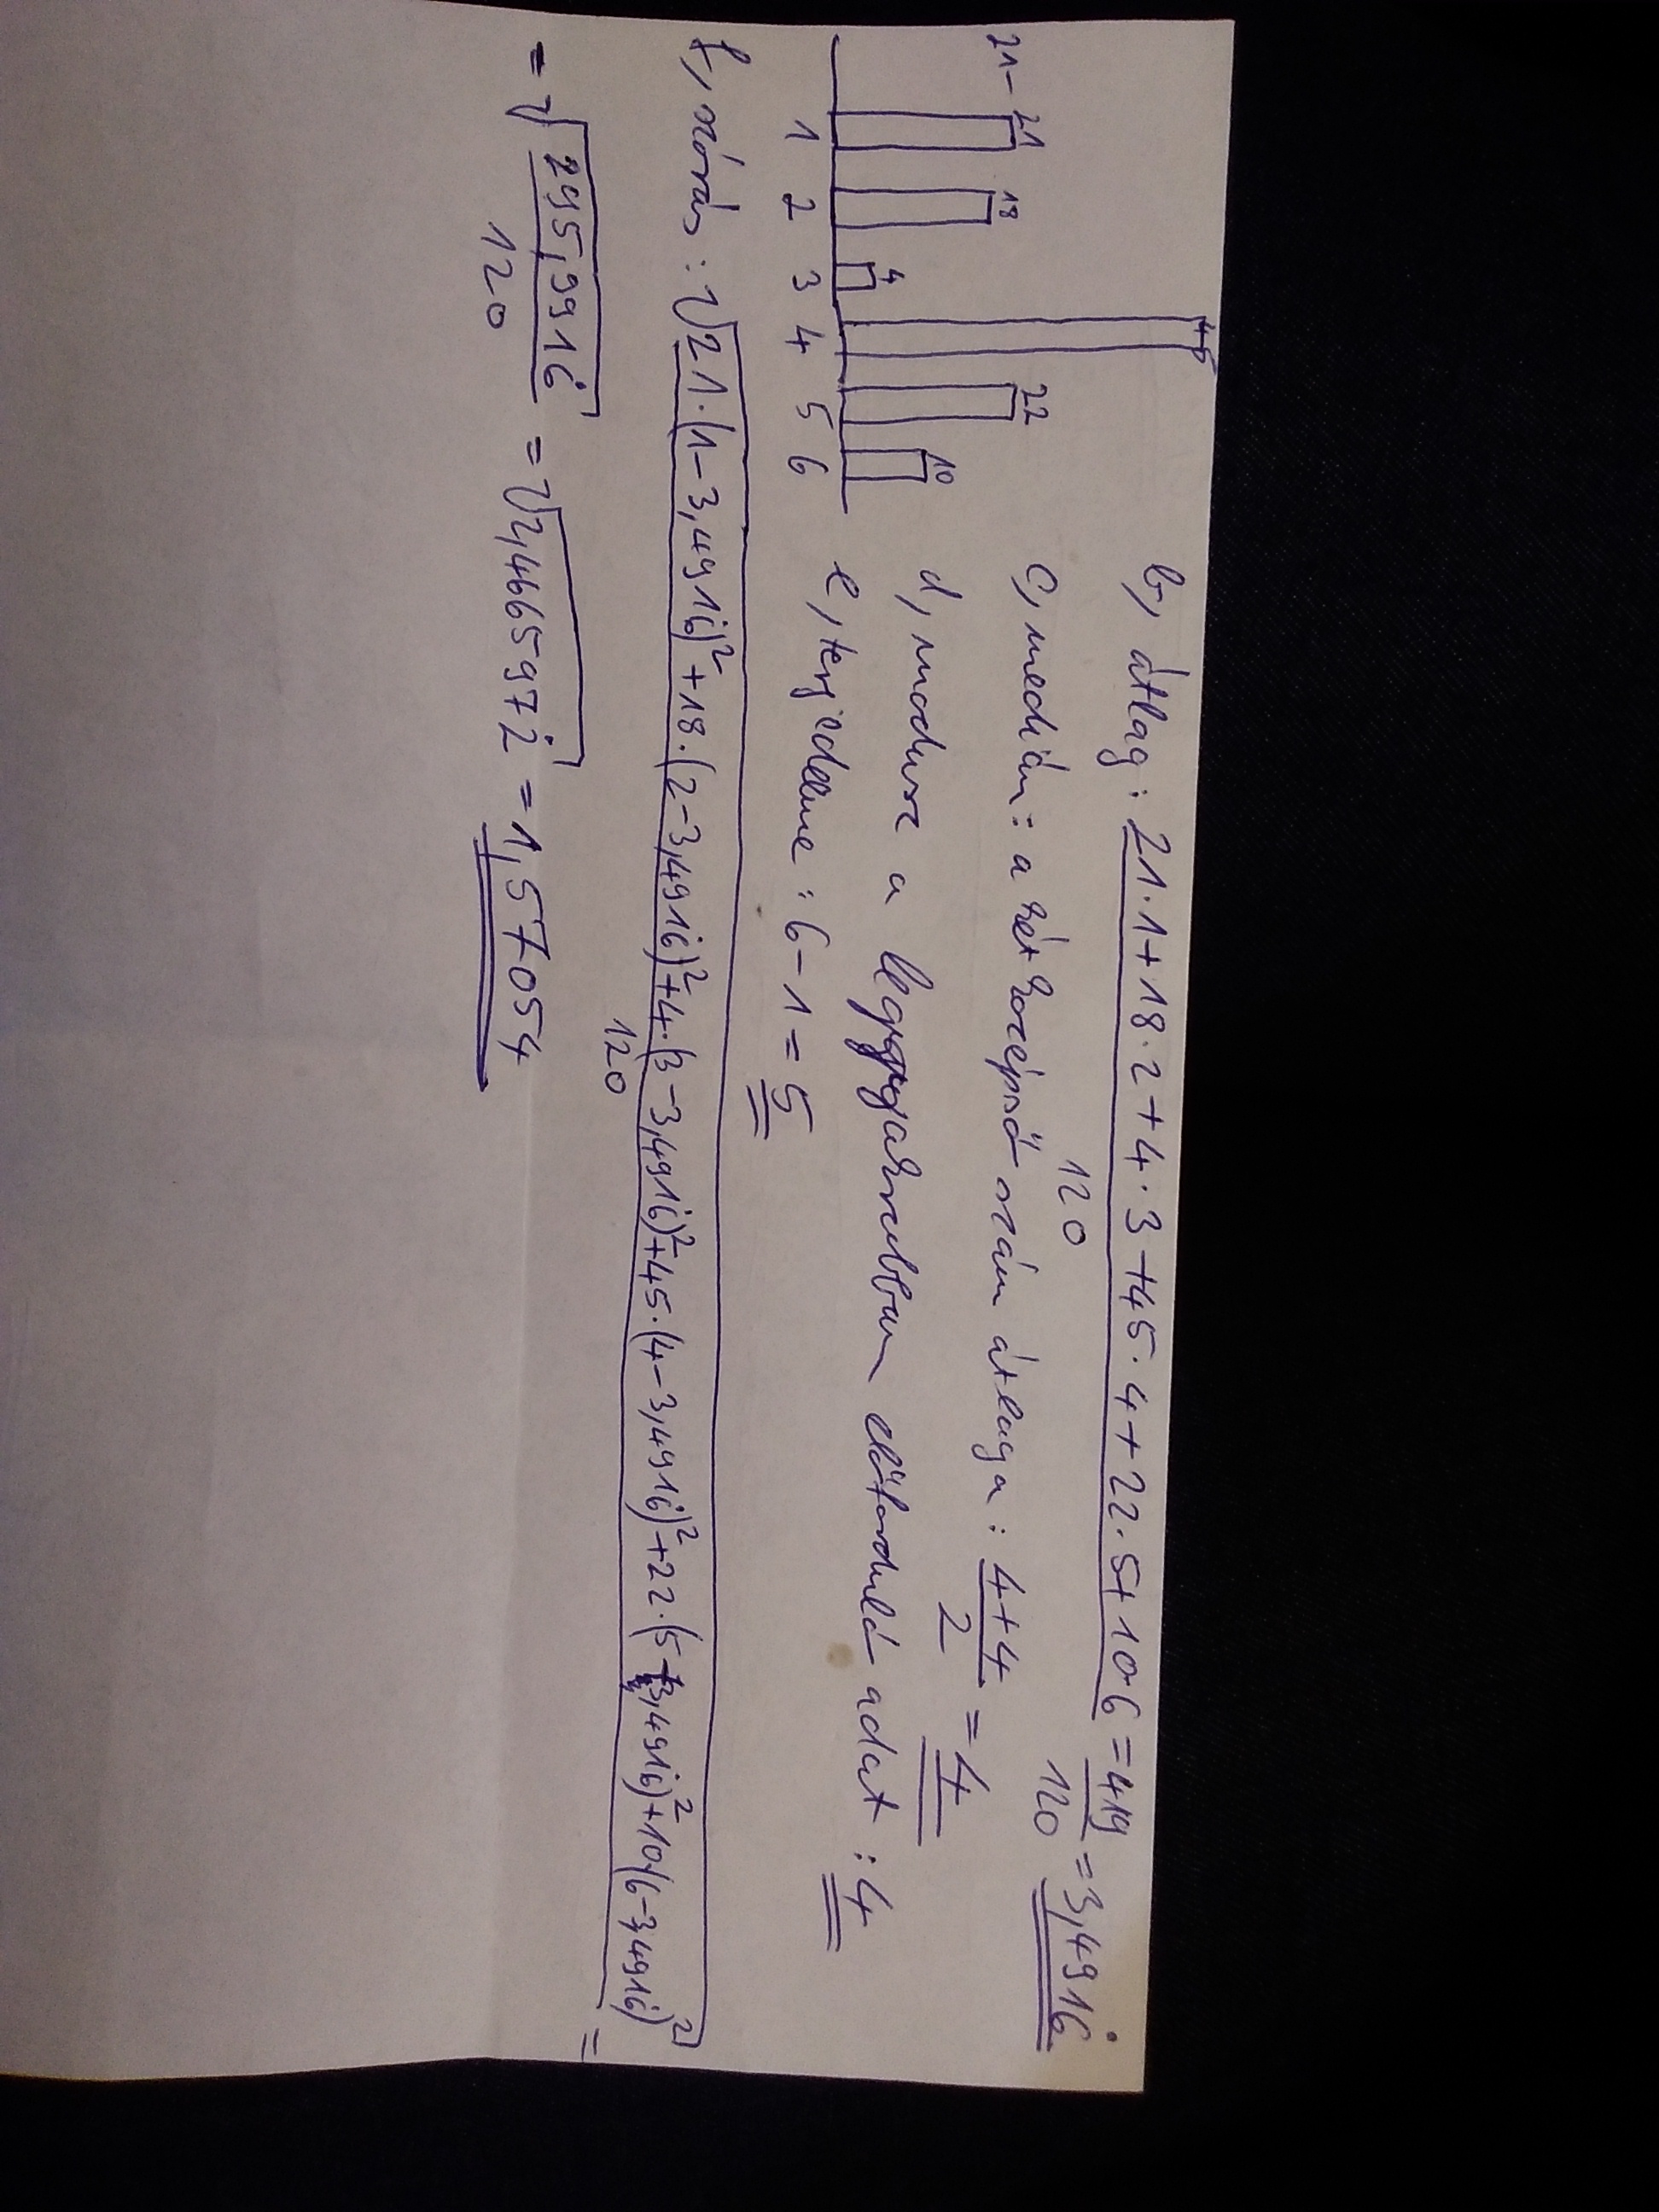 21– 21 18 4 45 22 10
1 2 3 4 5 6
b, átlag: 21·1+18·2+4·3+45·4+22·5+10·6 / 120 = 419/120 = 3,4916̇
c, medián: a két középső szám átlaga: 4+4 / 2 = 4
d, modusz a leggyakrabban előforduló adat: 4
e, terjedelme: 6–1=5
f, szórás: √21·(1–3,4916̇)²+18·(2–3,4916̇)²+4·(3–3,4916̇)²+45·(4–3,4916̇)²+22·(5–3,4916̇)²+10(6–3,4916̇)² / 120 =
= √295,9916̇ / 120 = √2,4665972̇ = 1,57054